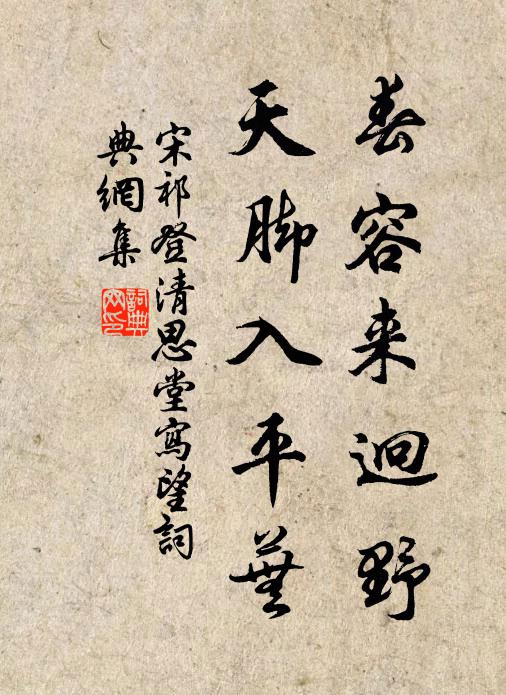 春容来迥野
天脚入平蕪
宋祁登清思堂寫望詞
典網集
詞典
网印